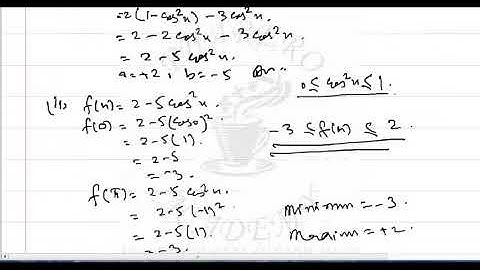 =2(1-cos²x)-3cos²x.
=2-2cos²x-3cos²x.
=2-5cos²x
a=+2, b=-5
(ii) f(x)=2-5cos²x.
f(0)=2-5(cos0)²
=2-5(1).
=2-5
=-3.
f(π)=2-5cos²x.
=2-5(-1)²
=2-5(1).
=-3.
0≤cos²x≤1.
-3≤f(x)≤2.
minimum=-3.
=+2.